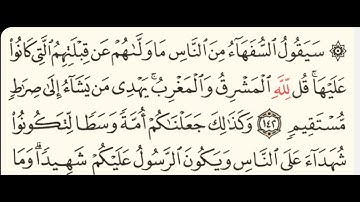 ۞ سَيَقُولُ ٱلسُّفَهَآءُ مِنَ ٱلنَّاسِ مَا وَلَّىٰهُمْ عَن قِبْلَتِهِمُ ٱلَّتِى كَانُوا۟
عَلَيْهَا ۚ قُل لِّلَّهِ ٱلْمَشْرِقُ وَٱلْمَغْرِبُ ۚ يَهْدِى مَن يَشَآءُ إِلَىٰ صِرَٰطٍ
مُّسْتَقِيمٍ ١٤٢ وَكَذَٰلِكَ جَعَلْنَٰكُمْ أُمَّةً وَسَطًا لِّتَكُونُوا۟
شُهَدَآءَ عَلَى ٱلنَّاسِ وَيَكُونَ ٱلرَّسُولُ عَلَيْكُمْ شَهِيدًا ۗ وَمَا